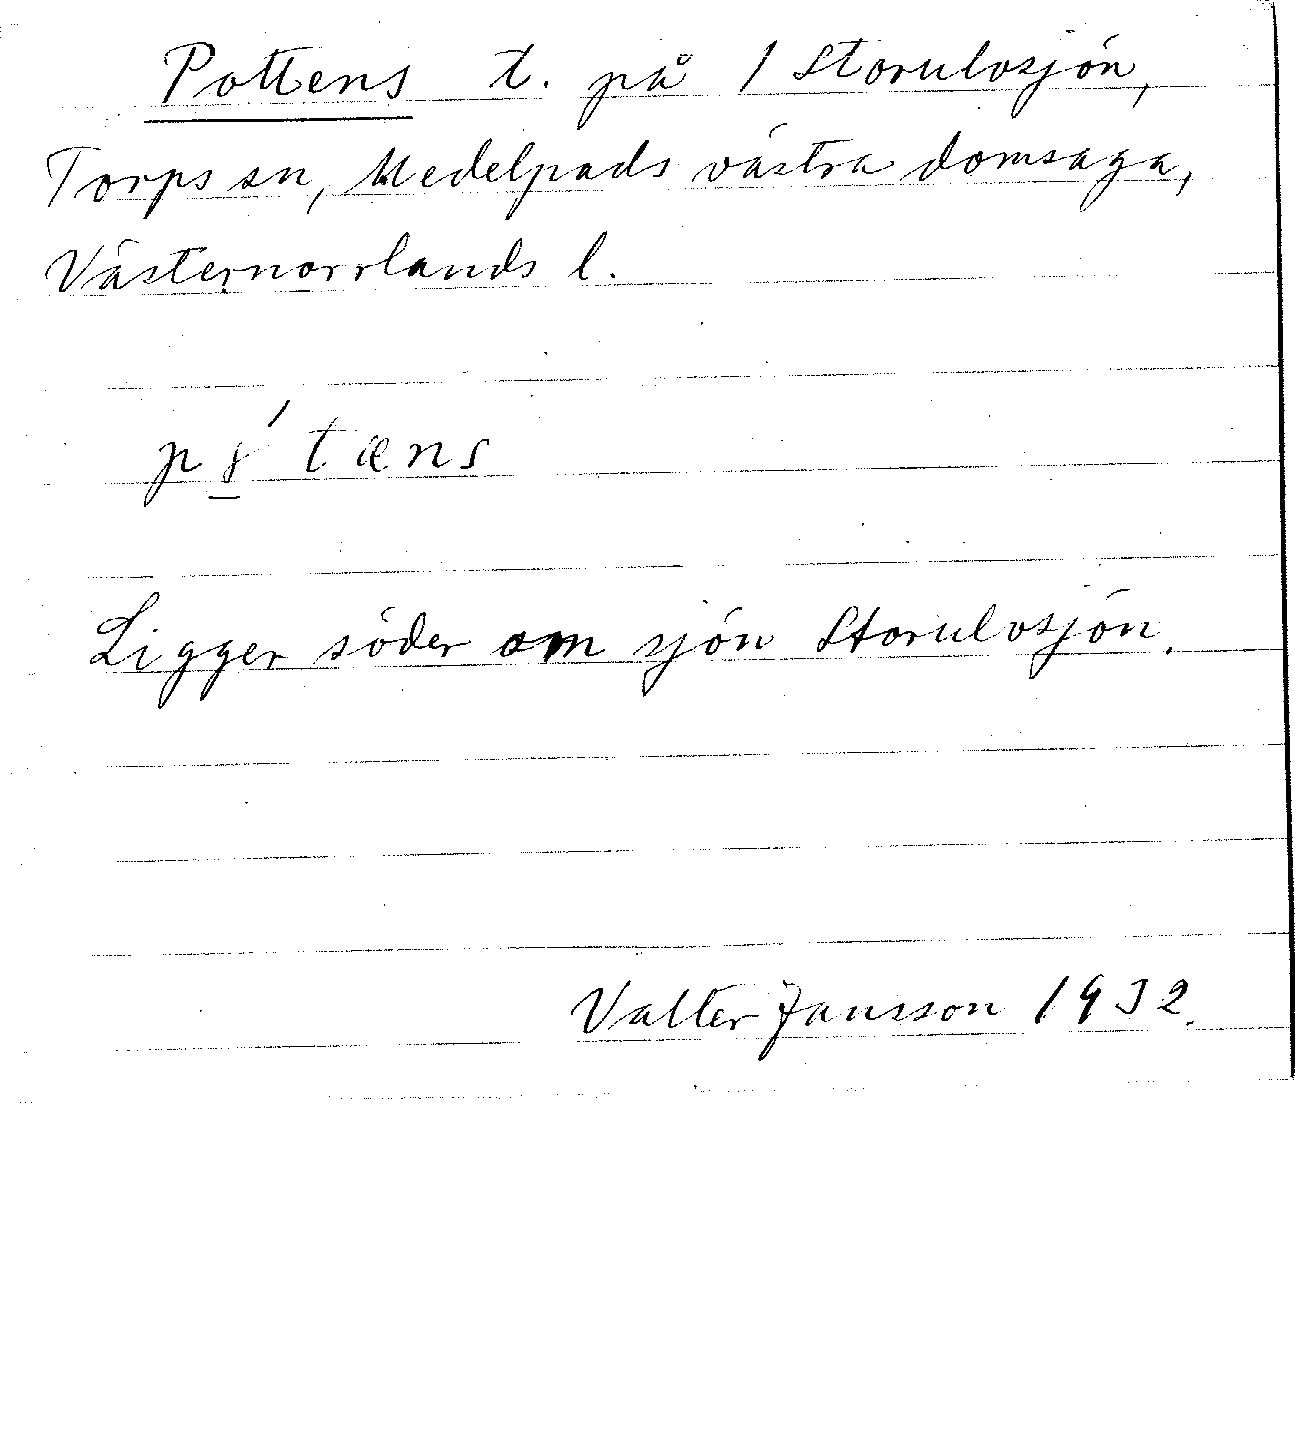 Pottens t. på 1 Storulvsjön,
Torps sn, Medelpads västra domsaga,
Västernorrlands l.
Ligger söder om sjön Storulvsjön.
Valter Jansson 1932.